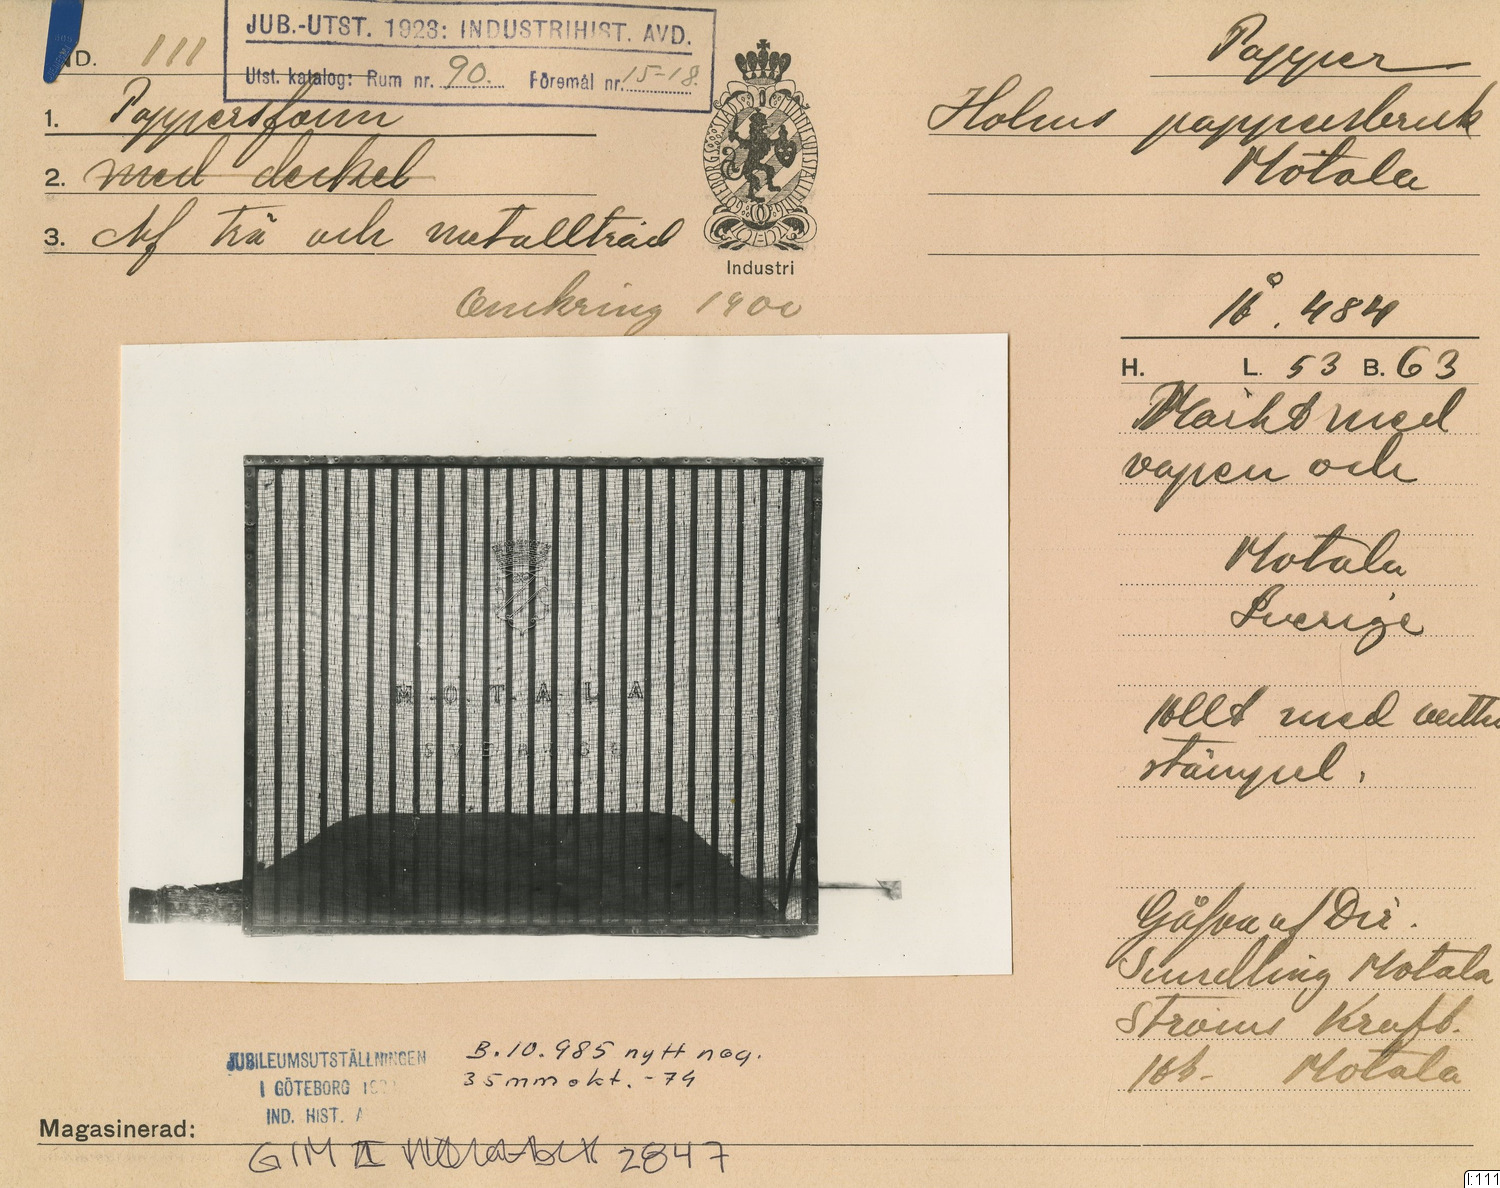 JUB.-UTST. 1923: INDUSTRIHIST. AVD.
Utst. katalog: Rum nr. 90. Föremål nr. 15-18.
IND. 111
1. Pappersform
2. med deckel
3. Af trä och metalltråd
Omkring 1900
GÖTEBORGS STADS MINNESUTSTÄLLNING
Industri
Papper
Holms pappersbruk
Motala
484
H. L. 53 B. 63
Märkt med
vapen och
Motala
Sverige
med
stämpel.
M.O.T.A.L.A
SVERIGE
Gåfva af Dir.
Smedling Motala
Ströms Kraft.
Motala
JUBILEUMSUTSTÄLLNINGEN
I GÖTEBORG
IND. HIST. A
B.10.985 nytt neg.
35 mm okt. -74
Magasinerad:
GIM II 2847
I:111